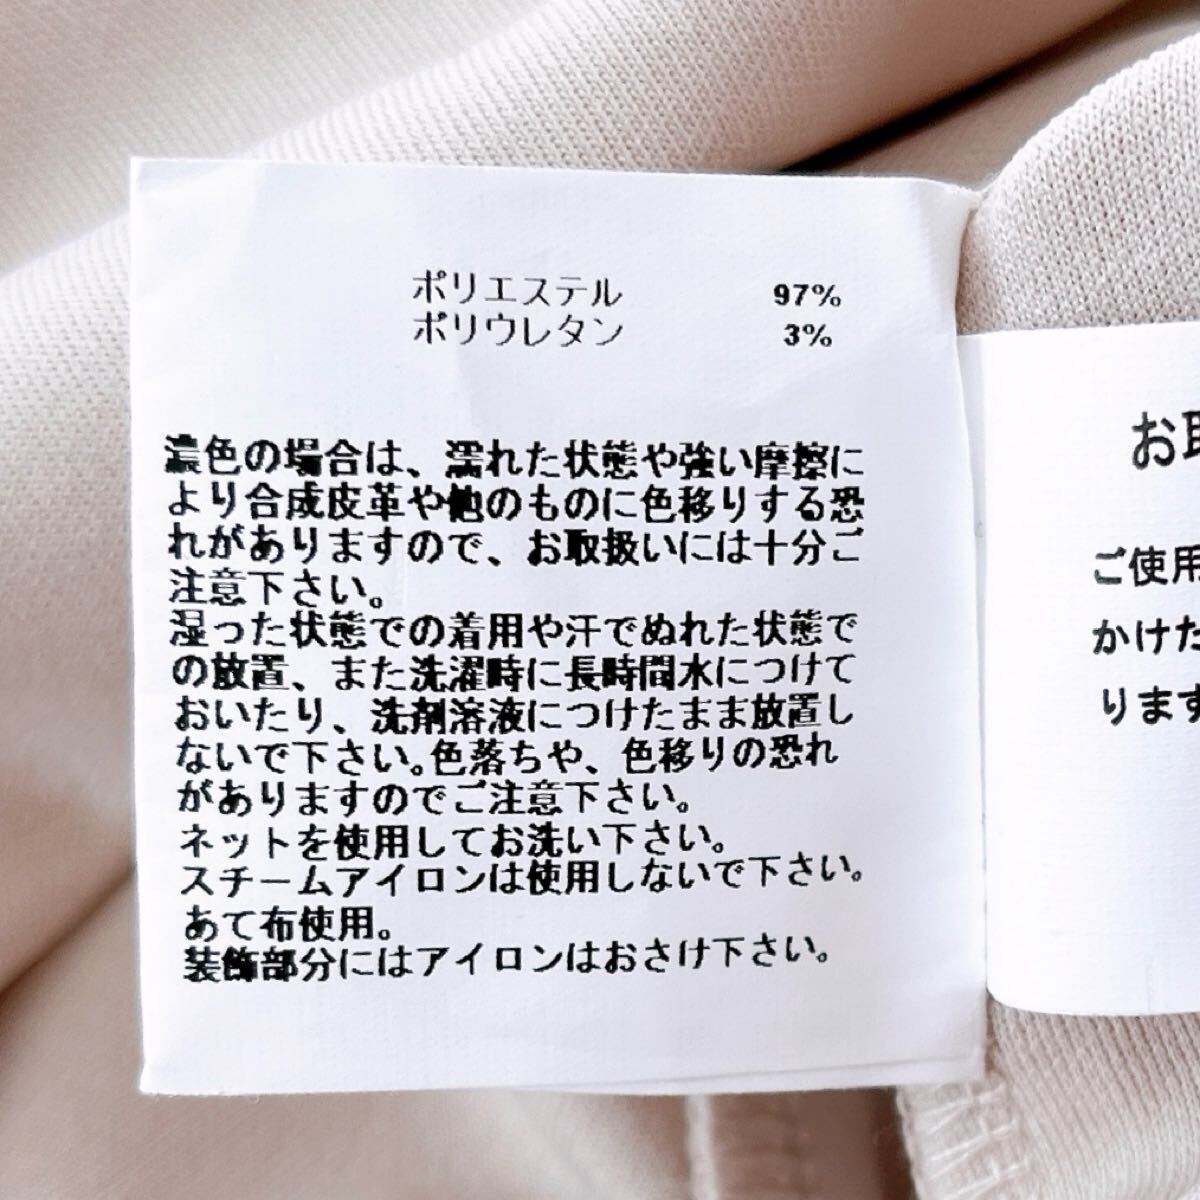 ポリエステル 97%
ポリウレタン 3%
濃色の場合は、濡れた状態や強い摩擦に
より合成皮革や他のものに色移りする恐
れがありますので、お取扱いには十分ご
注意下さい。
湿った状態での着用や汗でぬれた状態で
の放置、また洗濯時に長時間水につけて
おいたり、洗剤溶液につけたまま放置し
ないで下さい。色落ちや、色移りの恐れ
がありますのでご注意下さい。
ネットを使用してお洗い下さい。
スチームアイロンは使用しないで下さい。
あて布使用。
装飾部分にはアイロンはおさけ下さい。
お取
ご使用
かけた
ります